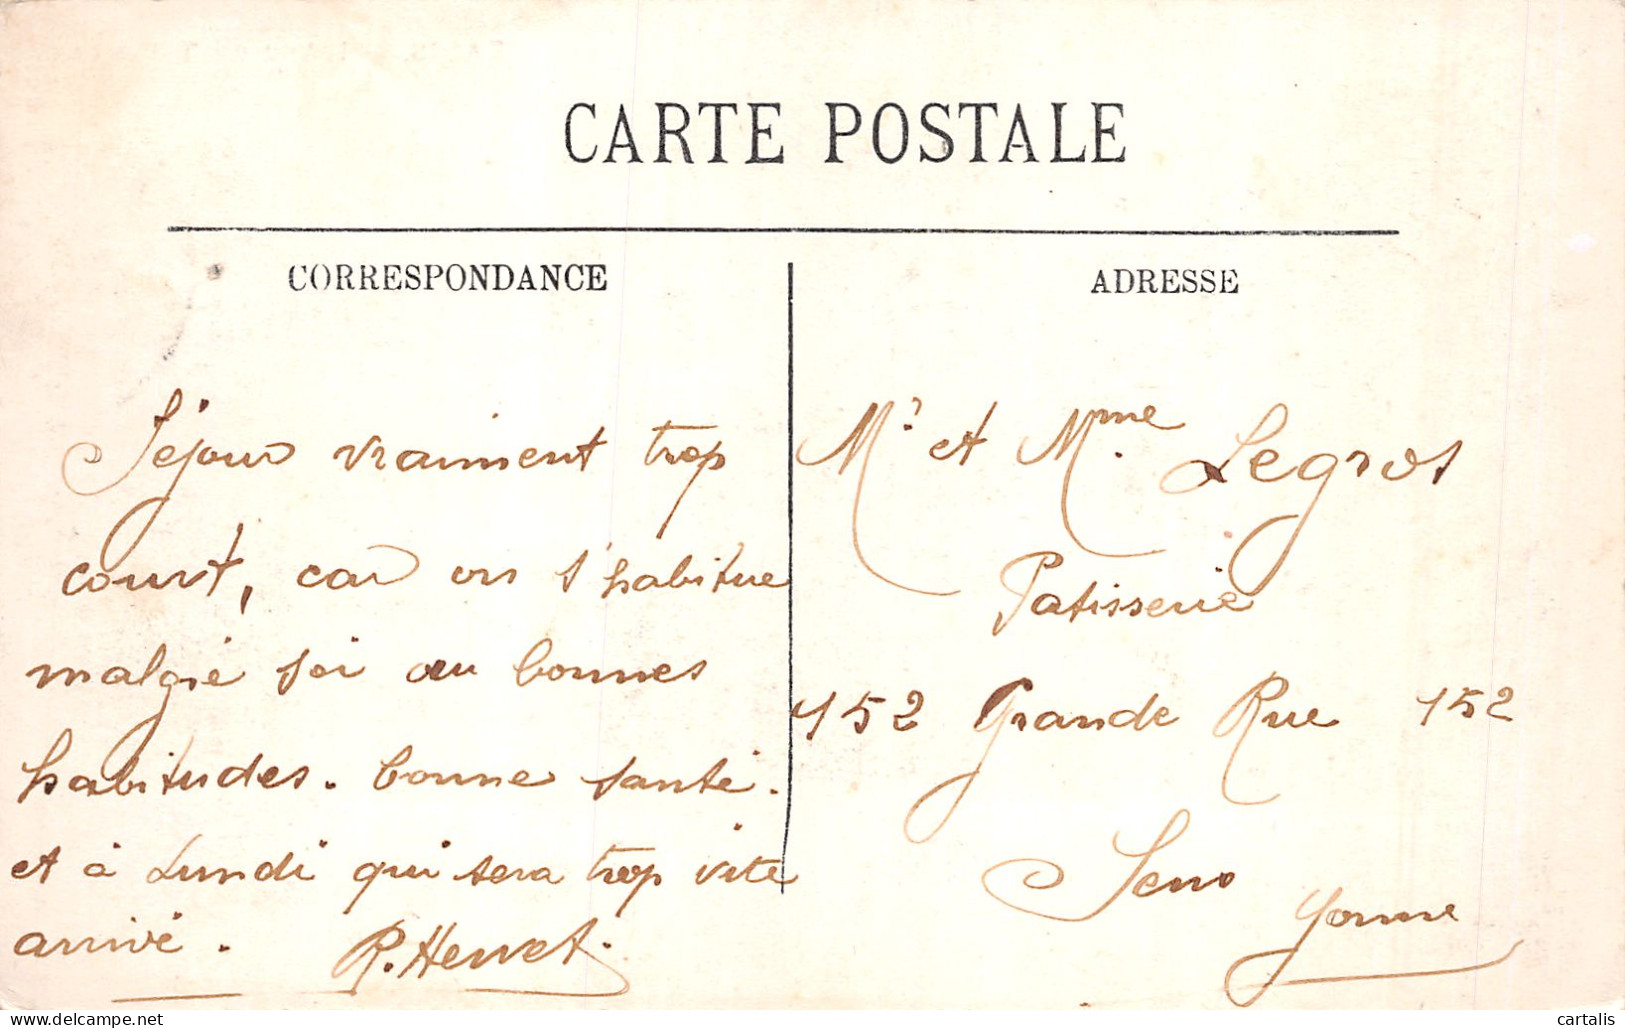 CARTE POSTALE
CORRESPONDANCE
Séjour vraiment trop
court, car on s'habitue
malgré soi au bonnes
habitudes. bonne santé.
et à Lundi qui sera trop vite
arrivé.
ADRESSE
Mr et Mme Legros
Patisserie
152 Grande Rue 152
Sens
Yonne
cartalis